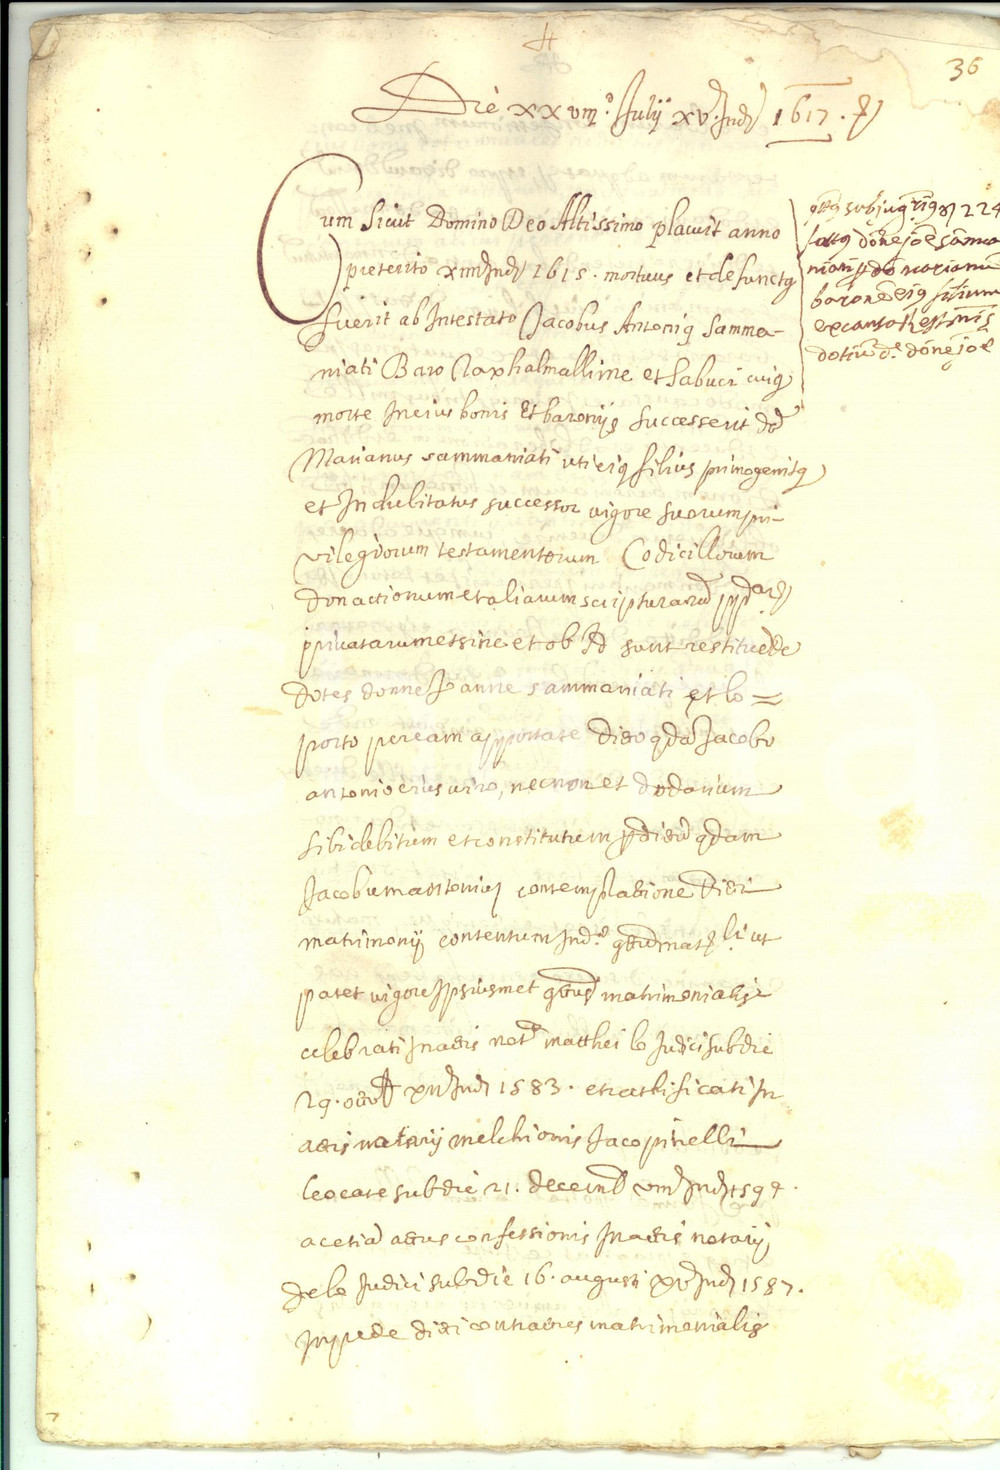 36
Die xxvm.º Julij xv.ª Ind. 1617.
Cum sicut Domino Deo Altissimo placuit anno
preterito xiiij Ind. 1615. mortuus et defunctus
fuerit ab Intestato Jacobus Antonius Samma-
niati Baro et Sabuci cuius
morte In eius bonis et baronijs successerit
Marianus sammaniati uti eius filius primogenitus
et Indubitatus successor vigore suorum pri-
vilegiorum testamentorum Codicillorum
donactionum et aliarum scripturarum
privatarum et sine et ob Id sunt restituende
dotes donne Joanne sammaniati et lo =
porto per eam apportate dicto qdam Jacobo
antonio eius viro, necnon et dodarium
sibi debitum et constitutum dictum qdam
Jacobum antonium contemplatione dicti
matrimonij contentum Ind.º ut
patet vigore Ipsiusmet matrimonialis
celebrati In actis not. matthei lo Judici sub die
29. Ind. 1583. et ratificati In
actis notarij melchionis Jacopinelli
leocate sub die 21. decemb. Ind. 1594.
ac etiam actus confessionis In actis notarij
de lo Judici sub die 16. augusti xv Ind. 1587.
In pede dicti contractus matrimonialis
subiug. 224
donne joe samma
niati don marianum
baronem eius filium
ex causa
dotium d. donne joe